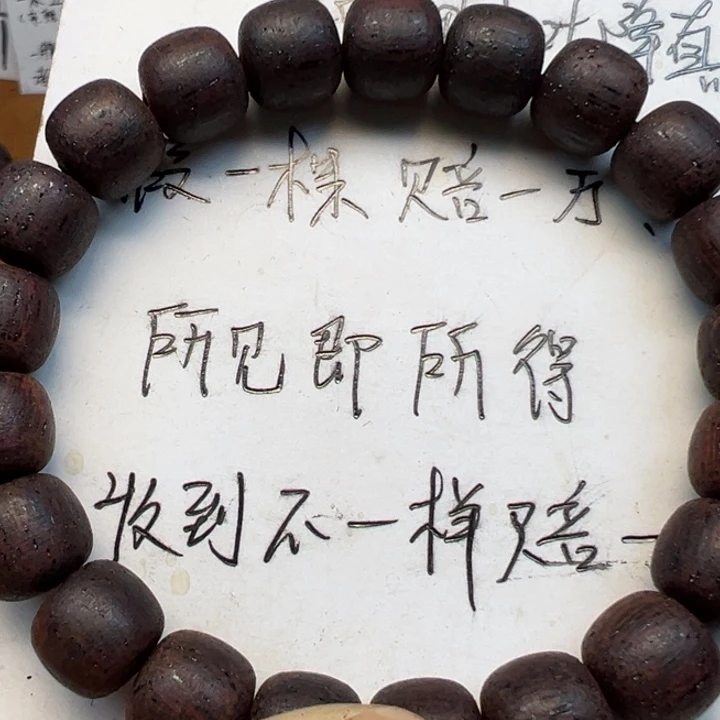 假一棵 赔一万
所见即所得
收到不一样赔一